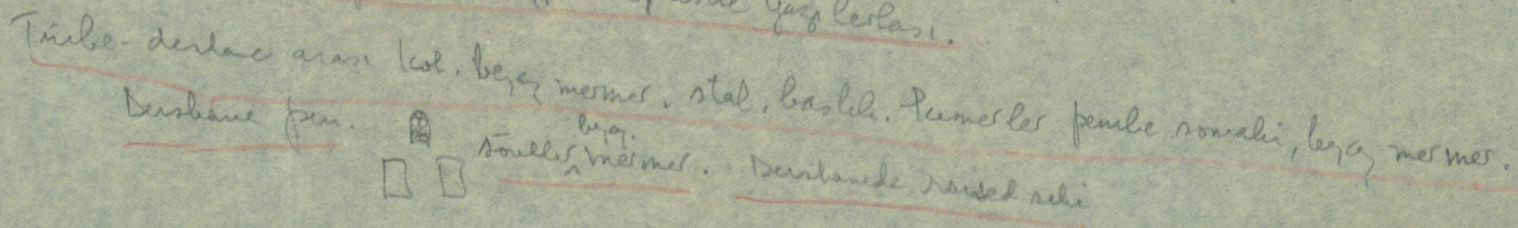 Türbe-dershane arası kol. beyaz mermer. stal. başlık. Kemerler pembe somaki, beyaz mermer.
Dershane pen. söveller beyaz. mermer. Dershanede raised seki